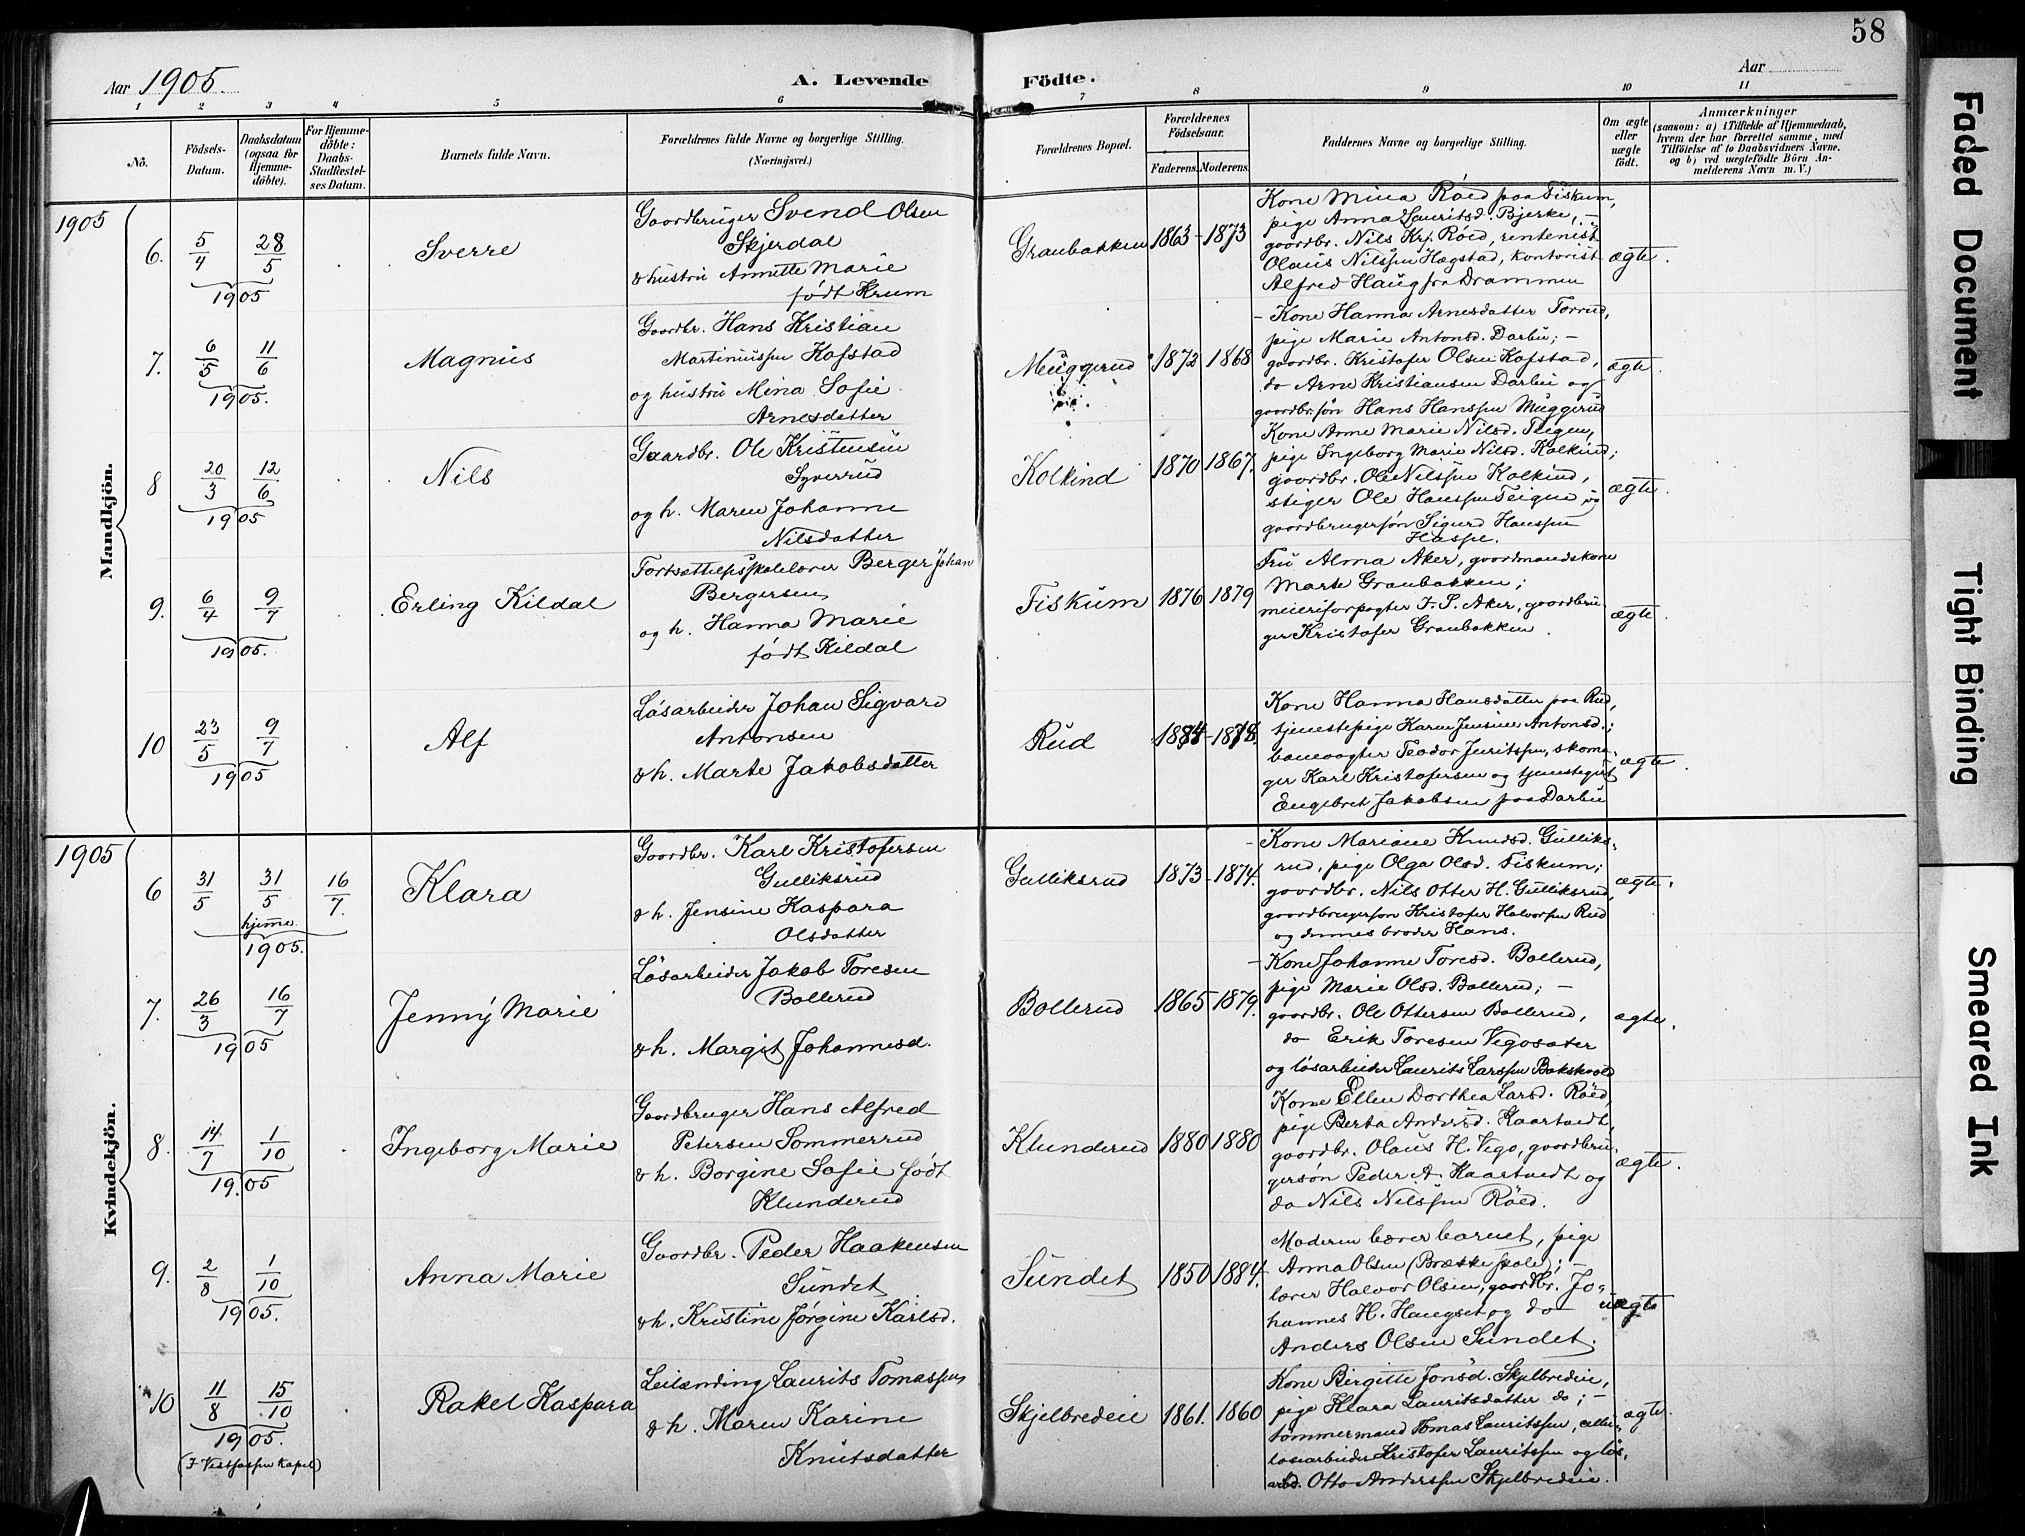 58
Aar 1905.
A. Levende Födte.
Aar
1 2 3 4 5 6 7 8 9 10 11
No.
Födsels-
Datum.
Daabsdatum
(ogsaa for
Hjemme-
döbte).
For Hjemme-
döbte:
Daabs-
Stadfæstel-
ses Datum.
Barnets fulde Navn.
Forældrenes fulde Navne og borgerlige Stilling.
(Næringsvei.)
Forældrenes Bopæl.
Forældrenes
Födselsaar.
Faderens. Moderens.
Faddernes Navne og borgerlige Stilling.
Om ægte
eller
uægte
födt.
Anmærkninger
(saasom: a) i Tilfælde af Hjemmedaab,
hvem der har forrettet samme, med
Tilföielse af to Daabsvidners Navne,
og b) ved uægtefödte Börn An-
melderens Navn m. V.)
Mandkjön.
1905
6. 5/4 28/5
1905
Sverre
Gaardbruger Svend Olsen
Skjerdal
& hustru Annette Marie
født Krum
Graubakken 1863 - 1873
Kone Mina Röed paa Fiskum,
pige Anna Lauritsd. Bjerke, -
gaardbr. Nils Krf. Röed, rentenist
Olaus Nilssen Hægstad, kontorist
Alfred Haug fra Drammen
ægte.
7. 6/5 11/6
1905.
Magnus
Gaardbr. Hans Kristian
Martiniussen Kofstad
og hustru Mina Sofie
Arnesdatter
Muggerud 1872 1868
- Kone Hanna Arnesdatter Torrud,
pige Marie Antonsd. Darbu; -
gaardbr. Kristofer Olsen Kofstad,
do Arne Kristiansen Darbu og
gaardbr.søn Hans Hanssen Muggerud
ægte.
8 20/3 12/6
1905
Nils
Gaardbr. Ole Kristensen
Syverrud
og h. Maren Johanne
Nilsdatter
Kolkind 1870 1867.
Kone Anne Marie Nilsd. Teigen,
pige Ingeborg Marie Nilsd. Kolkind;
gaardbr. Ole Nilssen Kolkind,
stiger Ole Hanssen Teigen og
gaardbrugersøn Sigurd Hanssen
ægte.
9. 6/4 9/7
1905.
Erling Kildal
Fortsættelsesskolelærer Berger Johan
Bergersen
og h. Hanna Marie
født Kildal
Fiskum 1876 1879
Fru Alma Aker, gaardmandskone
Marte Graubakken;
meieriforpagter J. P. Aker, gaardbru-
ger Kristofer Graubakken.
ægte.
10 23/5 9/7
1905
Alf
Løsarbeider Johan Sigvard
Antonsen
& h. Marte Jakobsdatter
Rud
Kone Hanna Hansdatter paa Rud,
tjenestepige Karen Jensine Antonsd.;
banevogter Teodor Juritssen, skoma-
ger Karl Kristofersen og tjenestegut
Engebret Jakobsen paa Darbu
ægte.
Kvindekjön.
1905
6 31/5 31/5 16/7.
hjemme
1905.
Klara
Gaardbr. Karl Kristofersen
Gulliksrud
& h. Jensine Kaspara
Olsdatter
Gulliksrud 1873 - 1874.
- Kone Mariane Knudsd. Gulliks-
rud, pige Olga Olsd. Fiskum;
gaardbr. Nils Otter H. Gulliksrud,
gaardbrugersøn Kristofer Halvorsen Rud
og dennes broder Hans.
ægte.
7. 26/3 16/7
1905
Jenny Marie
Løsarbeider Jakob Toresen
Bollerud
& h. Margit Johannesd.
Bollerud 1865 1879.
- Kone Johanne Toresd. Bollerud,
pige Marie Olsd. Bollerud; -
gaardbr. Ole Ottersen Bollerud,
do Erik Toresen Vegosæter
og løsarbeider Laurits Larssen Bakskaal
ægte.
8. 14/7 1/10
1905
Ingeborg Marie
Gaardbruger Hans Alfred
Petersen Sommerrud
& h. Borgine Sofie født
Klunderud
Klunderud 1880 1880
Kone Ellen Dorthea Larsd. Röed,
pige Berta Andersd. Kaartvedt,
gaardbr. Olaus H. Vego, gaardbru-
gersøn Peder A. Kaartvedt og
do Nils Nilssen Röed.
ægte.
9. 2/8 1/10
1905.
Anna Marie
Gaardbr. Peder Haakensen
Sundet
& h. Kristine Jørgine Karlsd.
Sundet 1850 1884.
Moderen bærer barnet, pige
Anna Olsen (Bræske skole); -
lærer Halvor Olsen, gaardbr. Jo-
hannes H. Haugset og do
Anders Olsen Sundet.
ægte
10 11/8 15/10
1905.
(I Vestfossen kapel)
Rakel Kaspara
Leilænding Laurits Tomassen
& h. Maren Karine
Knutsdatter
Skjelbredeie 1861. 1860
Kone Birgitte Jonsd. Skjelbredeie,
pige Klara Lauritsdatter do; -
tømmermand Tomas Lauritssen,
løsarbeider Kristofer Lauritssen og løs-
arbd. Otto Anderssen Skjelbredeie.
ægte.
Faded Document
Tight Binding
Smeared Ink